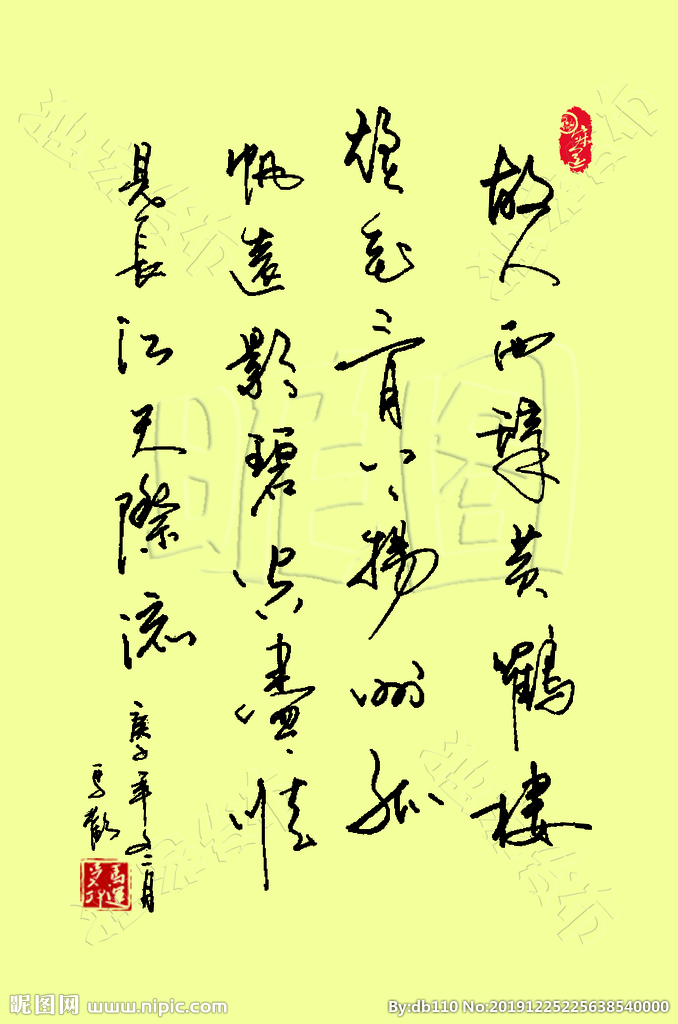 故人西辭黄鶴樓
煙花三月下揚州孤
帆遠影碧空盡惟
見長江天際流
庚子年二月
昵图
昵图网 www.nipic.com
By:db110 No:20191225225638540000